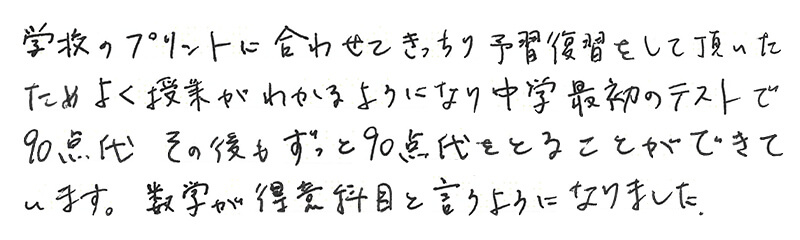 学校のプリントに合わせてきっちり予習復習をして頂いた
ためよく授業がわかるようになり中学最初のテストで
90点代 その後もずっと90点代をとることができて
います。数学が得意科目と言うようになりました.